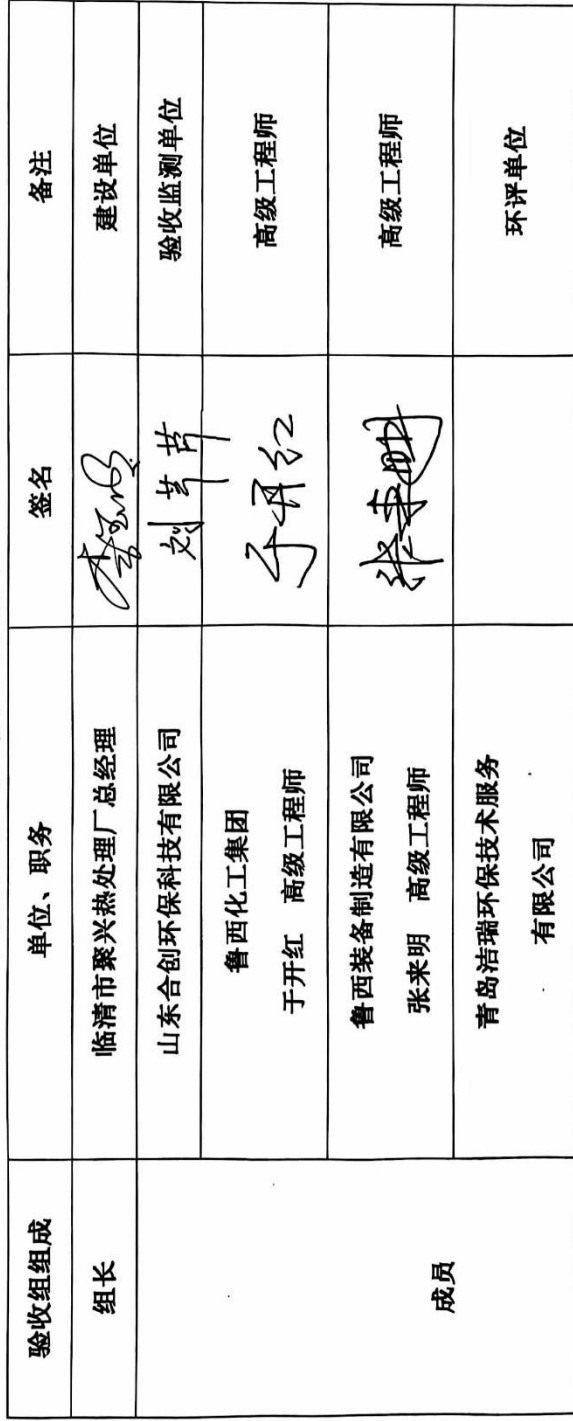 验收组组成 单位、职务 签名 备注
组长 临清市聚兴热处理厂总经理 建设单位
山东合创环保科技有限公司 刘芊芊 验收监测单位
成员
鲁西化工集团
于开红 高级工程师 于开红 高级工程师
鲁西装备制造有限公司
张来明 高级工程师 张来明 高级工程师
青岛洁瑞环保技术服务
有限公司 环评单位